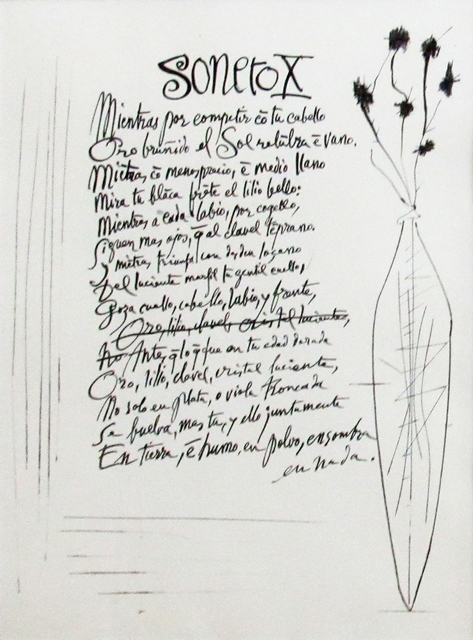 Soneto X
Mientras por competir cō tu cabello
Oro bruñido el Sol relūbra ē vano,
Miētras cō menosprecio, ē medio llano
Mira tu blāca frēte el lilio bello:
Mientras a cada labio, por cogello,
Siguen mas ojos, q̄ al clavel tēprano.
y miētras triumfa con desden loçano
Del luciente marfil tu gentil cuello,
Goza cuello, cabello, labio, y frente,
Oro, lilio, clavel, cristal luciente,
Antes q̄ lo q̄ fue en tu edad dorada
Oro, lilio, clavel, cristal luciente,
No solo en plata, o viola troncada
Se buelva, mas tu, y ello juntamente
En tierra, ē humo, en polvo, en sombra
en nada.